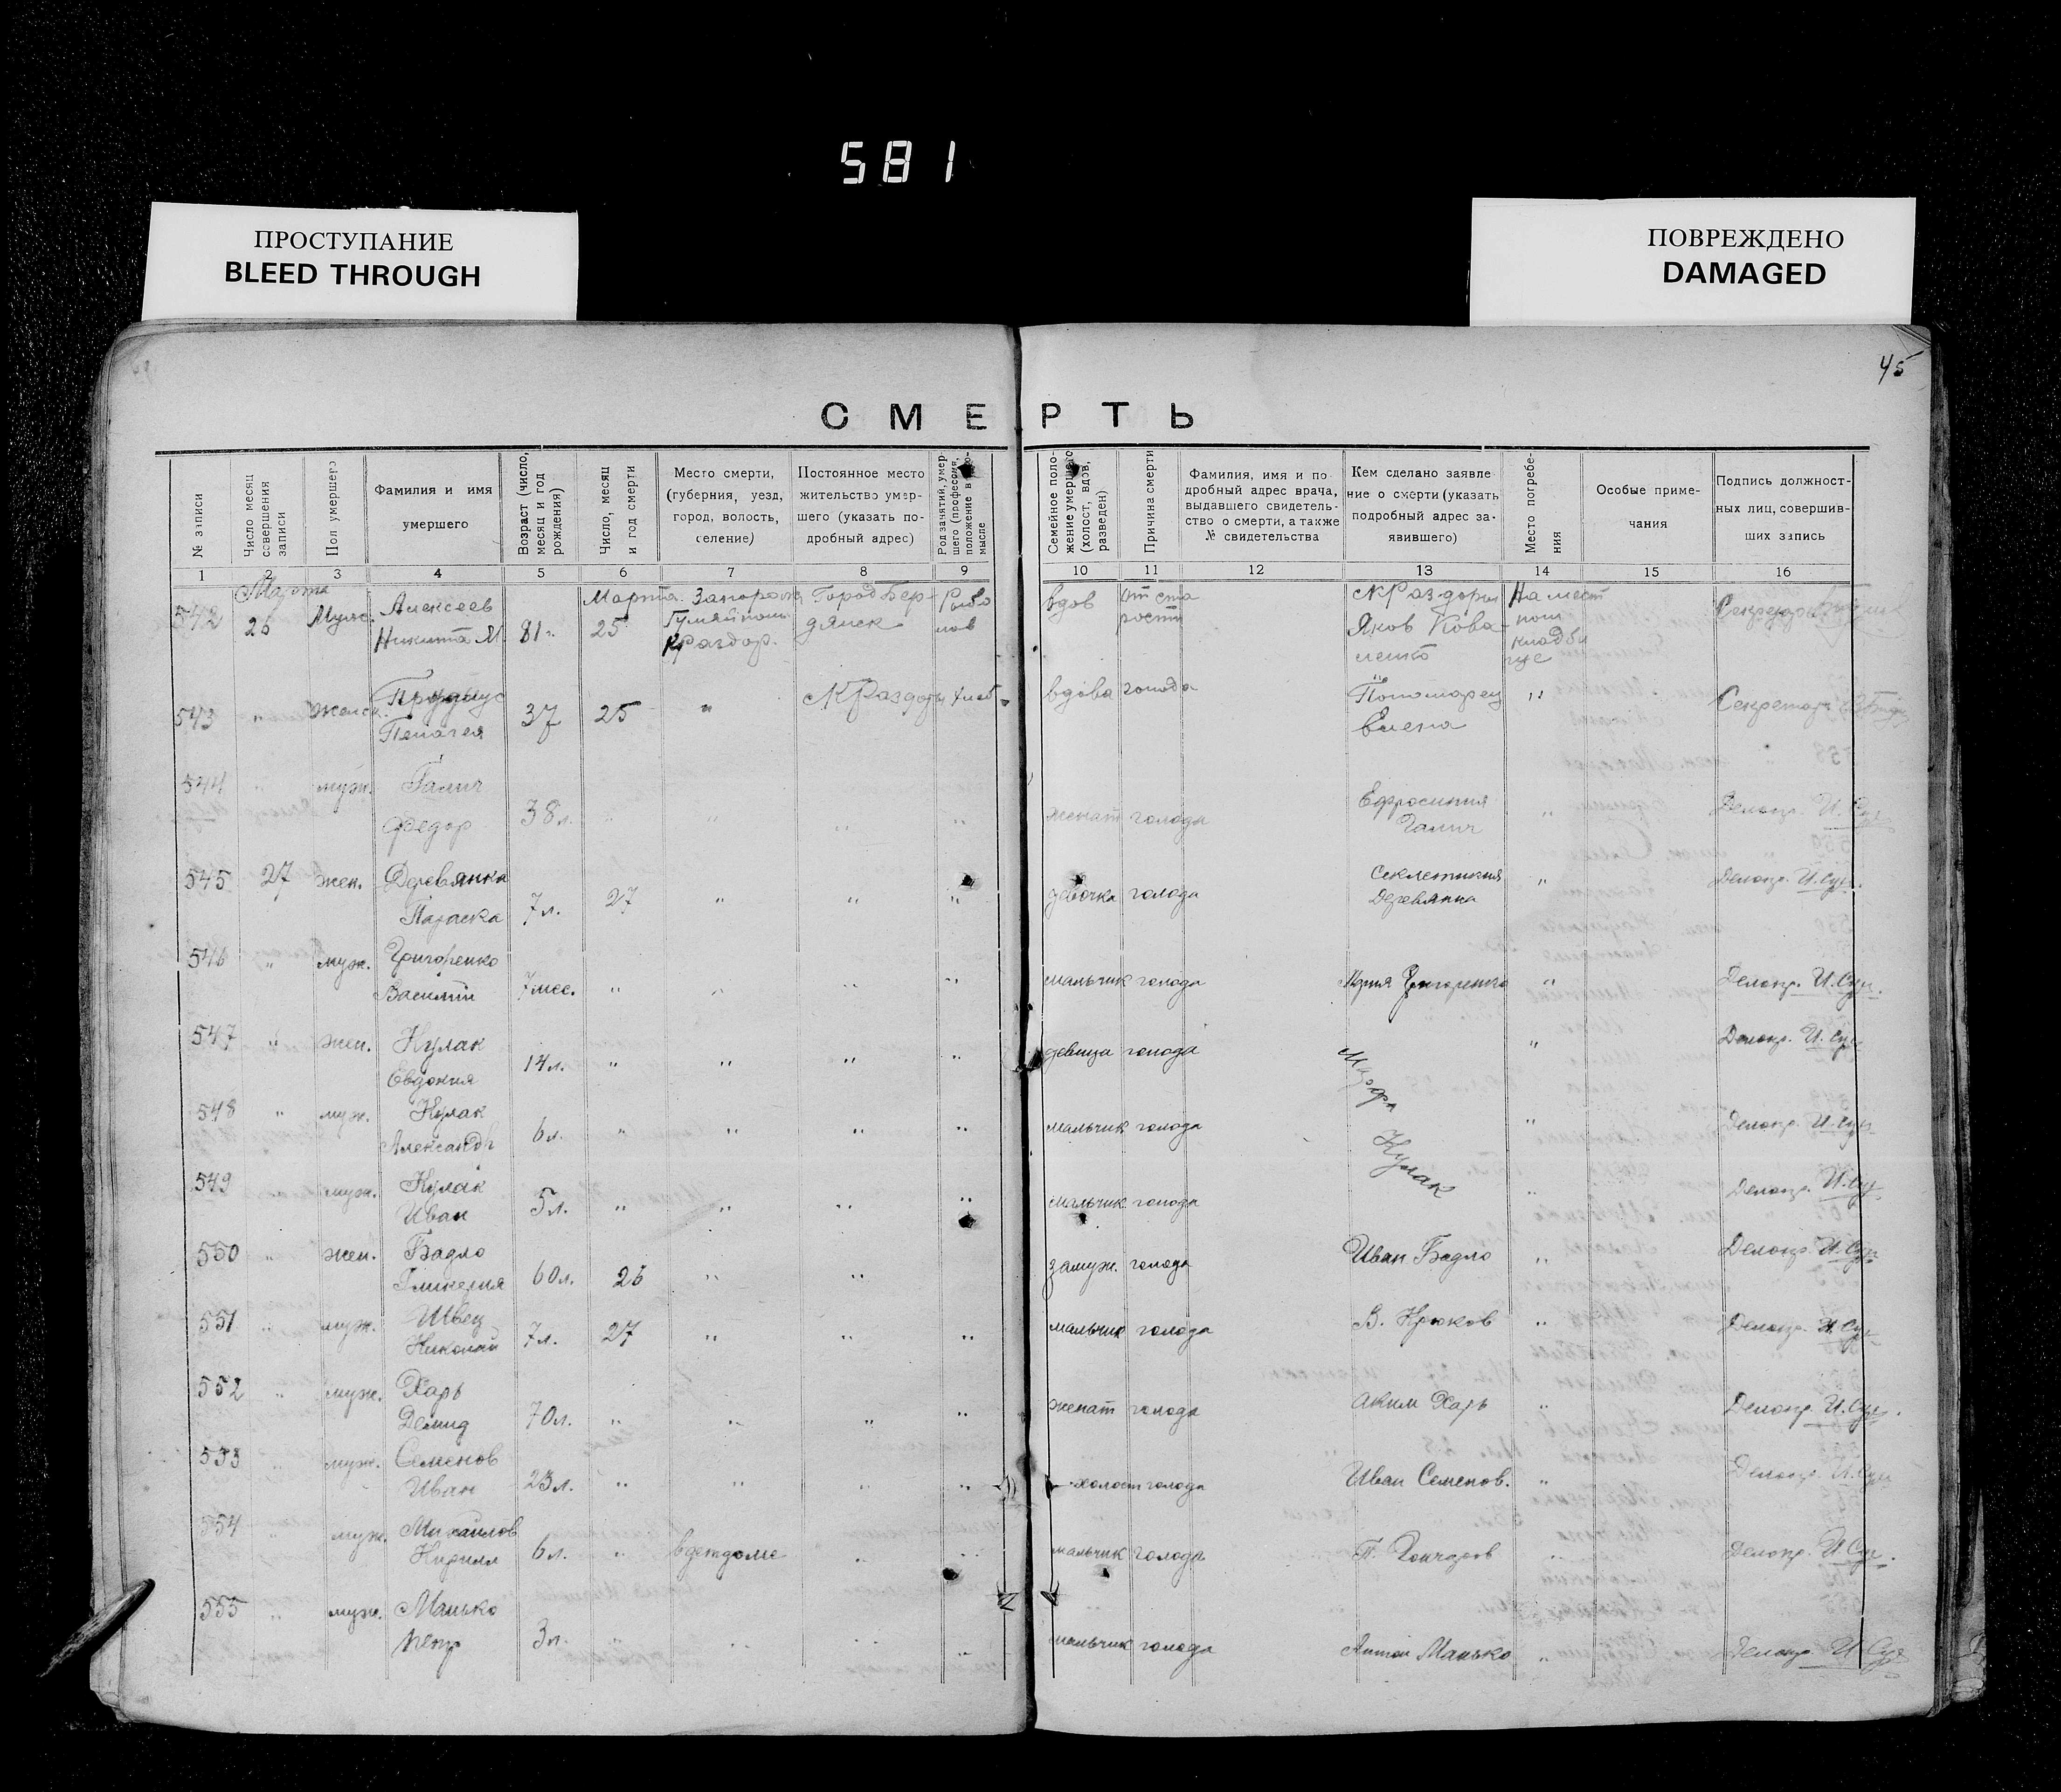 581
ПРОСТУПАНИЕ
BLEED THROUGH
ПОВРЕЖДЕНО
DAMAGED
45
СМЕРТЬ
№ записи
Число месяц
совершения
записи
Пол умершего
Фамилия и имя
умершего
Возраст (число,
месяц и год
рождения)
Число, месяц
и год смерти
Место смерти,
(губерния, уезд,
город, волость,
селение)
Постоянное место
жительство умер-
шего (указать по-
дробный адрес)
Род занятий, умер-
шего (профессия,
положение в
мысле
Семейное поло-
жение умершего
(холост, вдов,
разведен)
Причина смерти
Фамилия, имя и по
дробный адрес врача,
выдавшего свидетель-
ство о смерти, а также
№ свидетельства
Кем сделано заявле
ние о смерти (указать
подробный адрес за-
явившего)
Место погребе-
ния
Особые приме-
чания
Подпись должност-
ных лиц, совершив-
ших запись
1 2 3 4 5 6 7 8 9 10 11 12 13 14 15 16
Марта Алексеев Марта Город Бер- от ста На мест
542 26 Муж. Никита М. 81 25 дянск вдов рости Яков Кова- ном
ленко кладби
ще
543 " 37 25 " вдова голода Пономарец "
Пелагея Елена Секретарь
544 " муж. Галич Ефросиния
Федор 38 л. " " " " женат голода Галич " Делопр. И. Сук
545 27 жен. Деревянка
Параска 7 л. 27 " " " девочка голода Деревянка " Делопр. И. Сук.
546 " муж. Григоренко
Василий 7 мес. " " " " мальчик голода Мария Григоренко " Делопр. И. Сук.
547 " жен. Кулак
Евдокия 14 л. " " " " девица голода Марфа " Делопр. И. Сук
548 " муж. Кулак
Александр 6 л. " " " " мальчик голода Кулак " Делопр. И. Сук.
549 муж. Кулак
Иван 5 л. " " " " мальчик голода " Делопр. И. Сук.
550 " жен. Бадло
Гликерия 60 л. 26 " " замуж. голода Иван Бадло " Делопр. И. Сук
551 " муж. Швец
Николай 7 л. 27 " " " мальчик голода В. Крюков " Делопр. И. Сук
552 " муж. Харь
Демид 70 л. " " " " женат голода Аким Харь " Делопр. И. Сук.
553 муж. Семенов
Иван 23 л. " " " " холост голода Иван Семенов. " Делопр. И. Сук
554 " муж. Михайлов
Кирилл 6 л. " в детдоме " " мальчик голода П. Гончаров " Делопр. И. Сук.
555 " муж. Манько
Петр 3 л. " " " " мальчик голода Антон Манько " Делопр. И. Сук